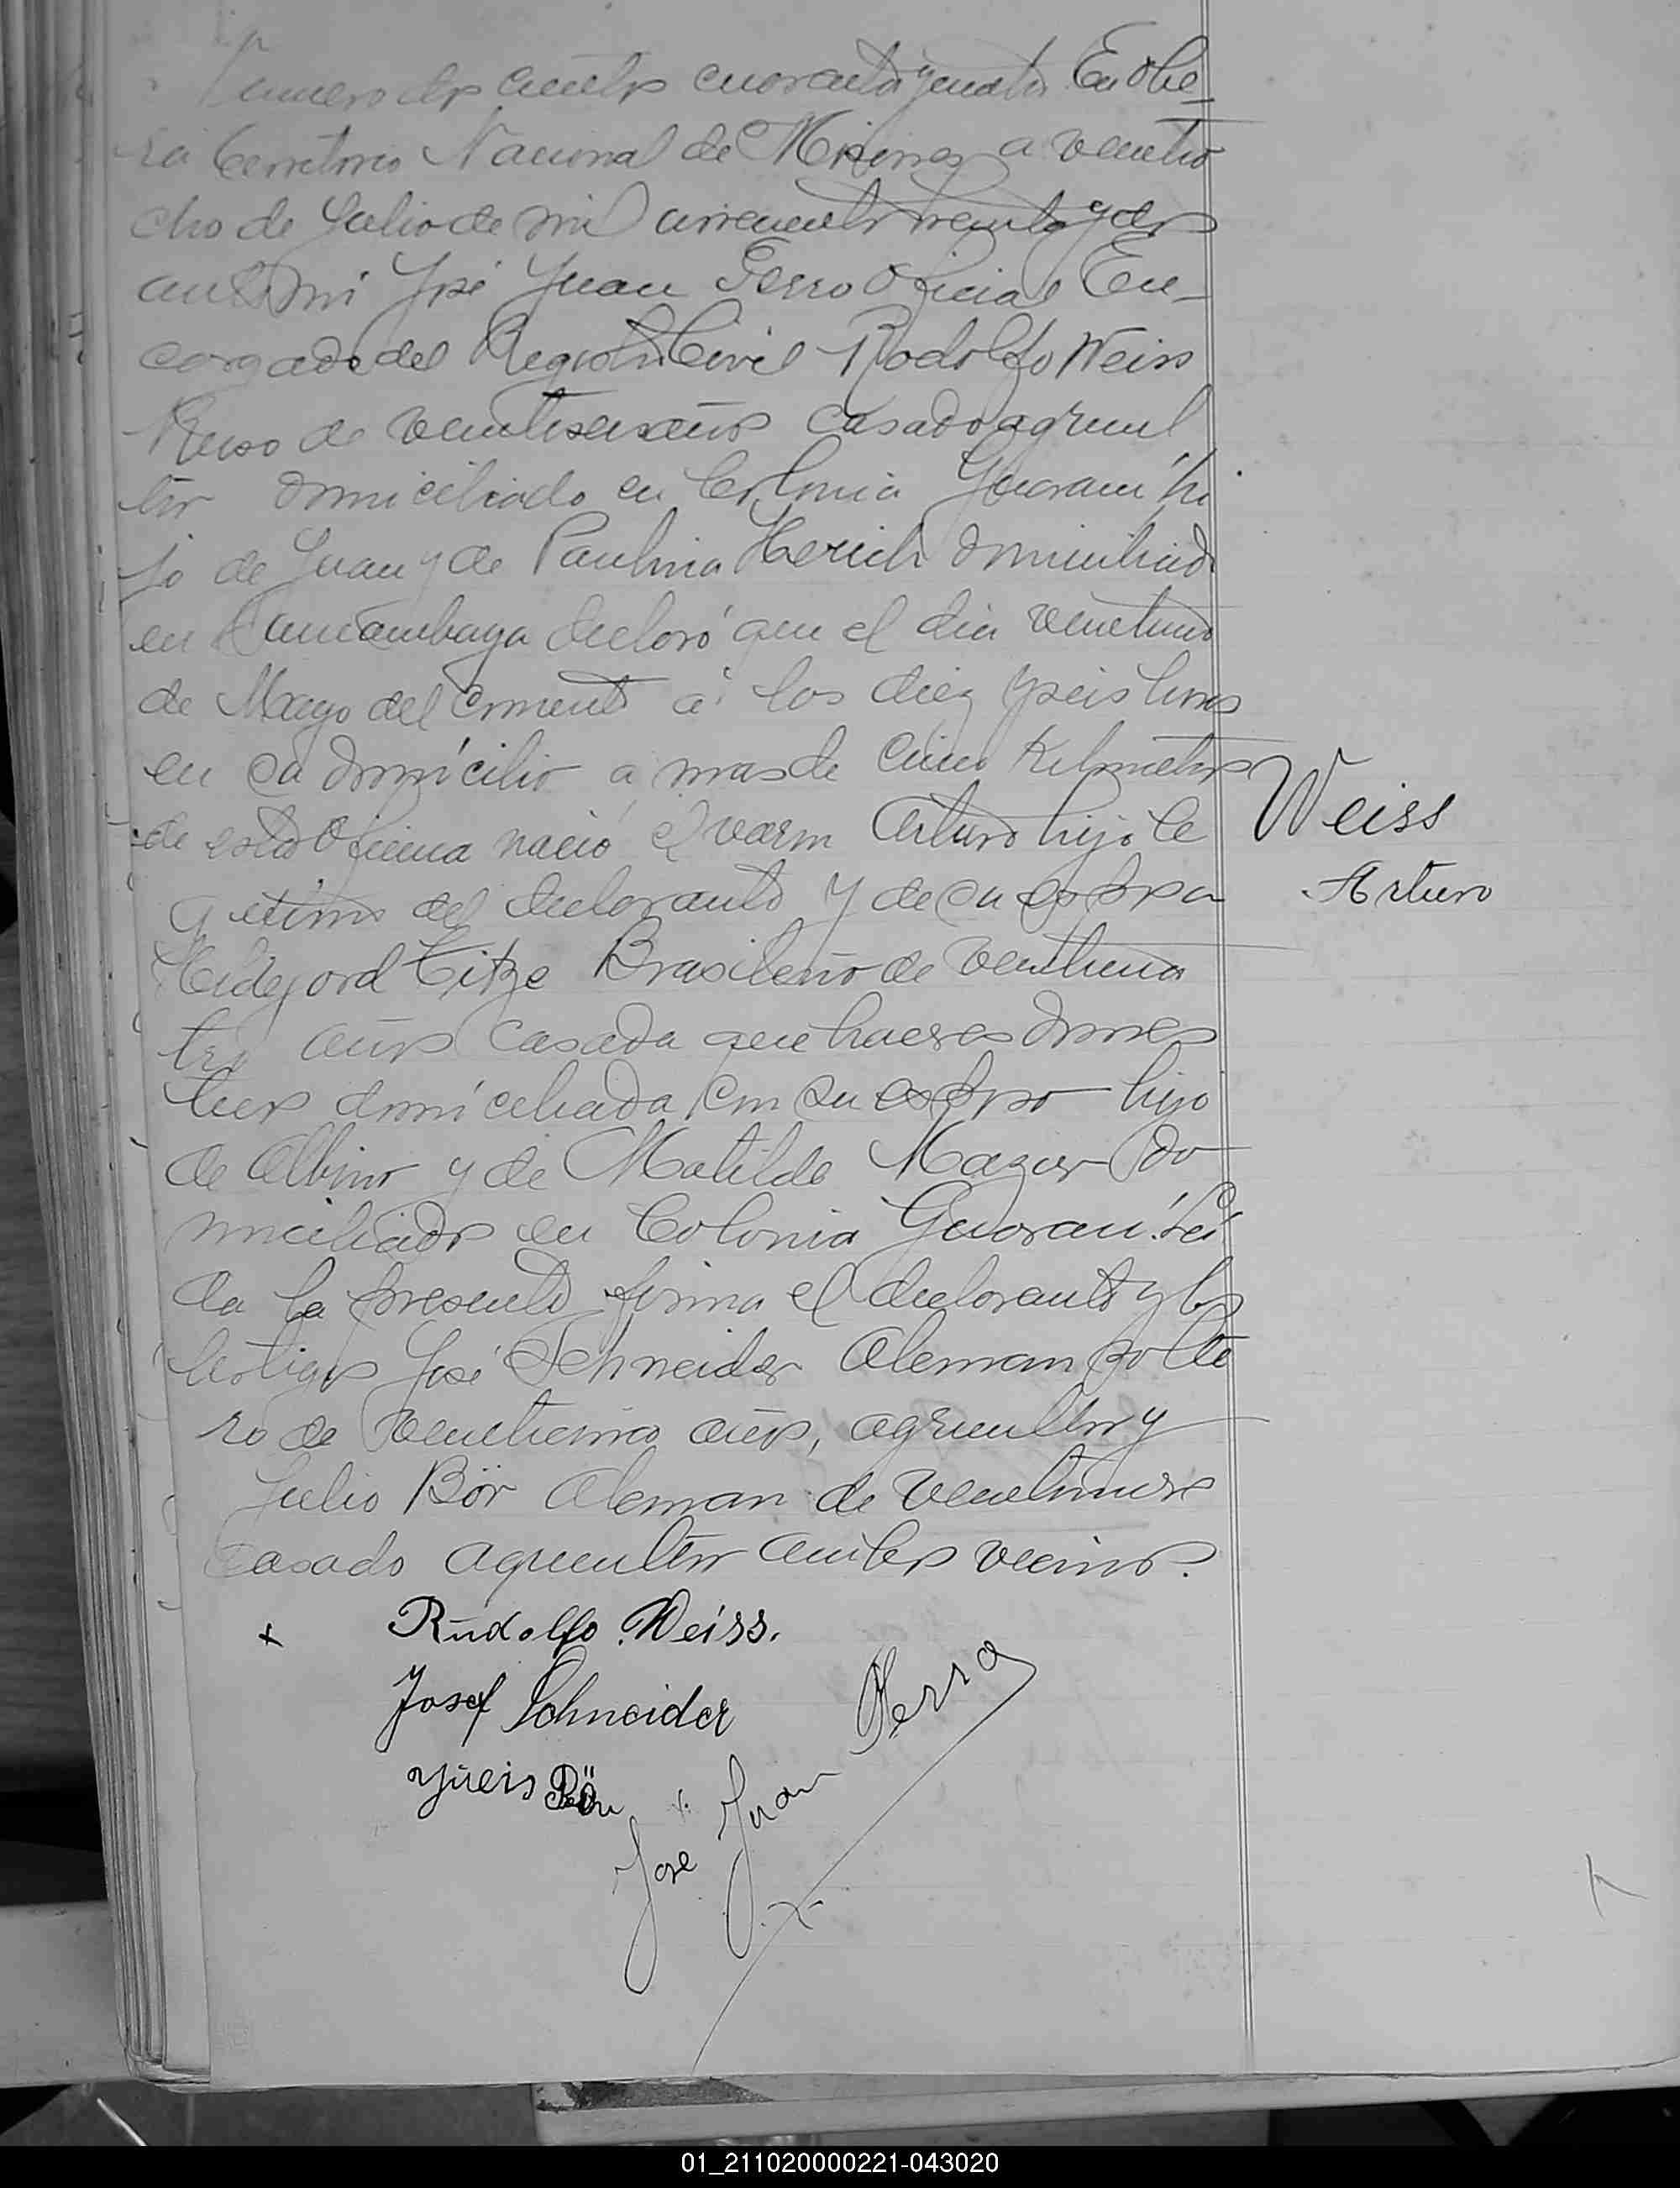 Numero dos cientos cuarenta y cuatro En Obe-
ra Territorio Nacional de Misiones a veintio
cho de Julio de mil novecientos treinta y dos
ante mi José Juan Ferro Oficial En-
cargado del Registro Civil Rodolfo Weiss
Ruso de veintiseis años casado agricul
tor domiciliado en Colonia Guarani hi
jo de Juan y de Paulina Herich domiciliado
en declaró que el dia veintiuno
de Mayo del corriente á las diez y seis horas
en su domicilio a mas de cinco Kilometros
de esta Oficina nació el varon Arturo hijo le
gitimo del declarante y de su esposa
Titze Brasileño de
años casada quehaceres domes
ticos domiciliada con su esposo hijo
de Albino y de Matilde Do
miciliados en Colonia Guaraní. Lei
da la presente firma el declarante y los
testigos José Schneider Aleman solte
ro de veinticinco años, agricultor y
Julio Bör Aleman de
casado agricultor ambos vecinos.
Weiss
Arturo
x Rudolfo Weiss.
Josef Schneider
Bör
José Juan Ferro
01_211020000221-043020